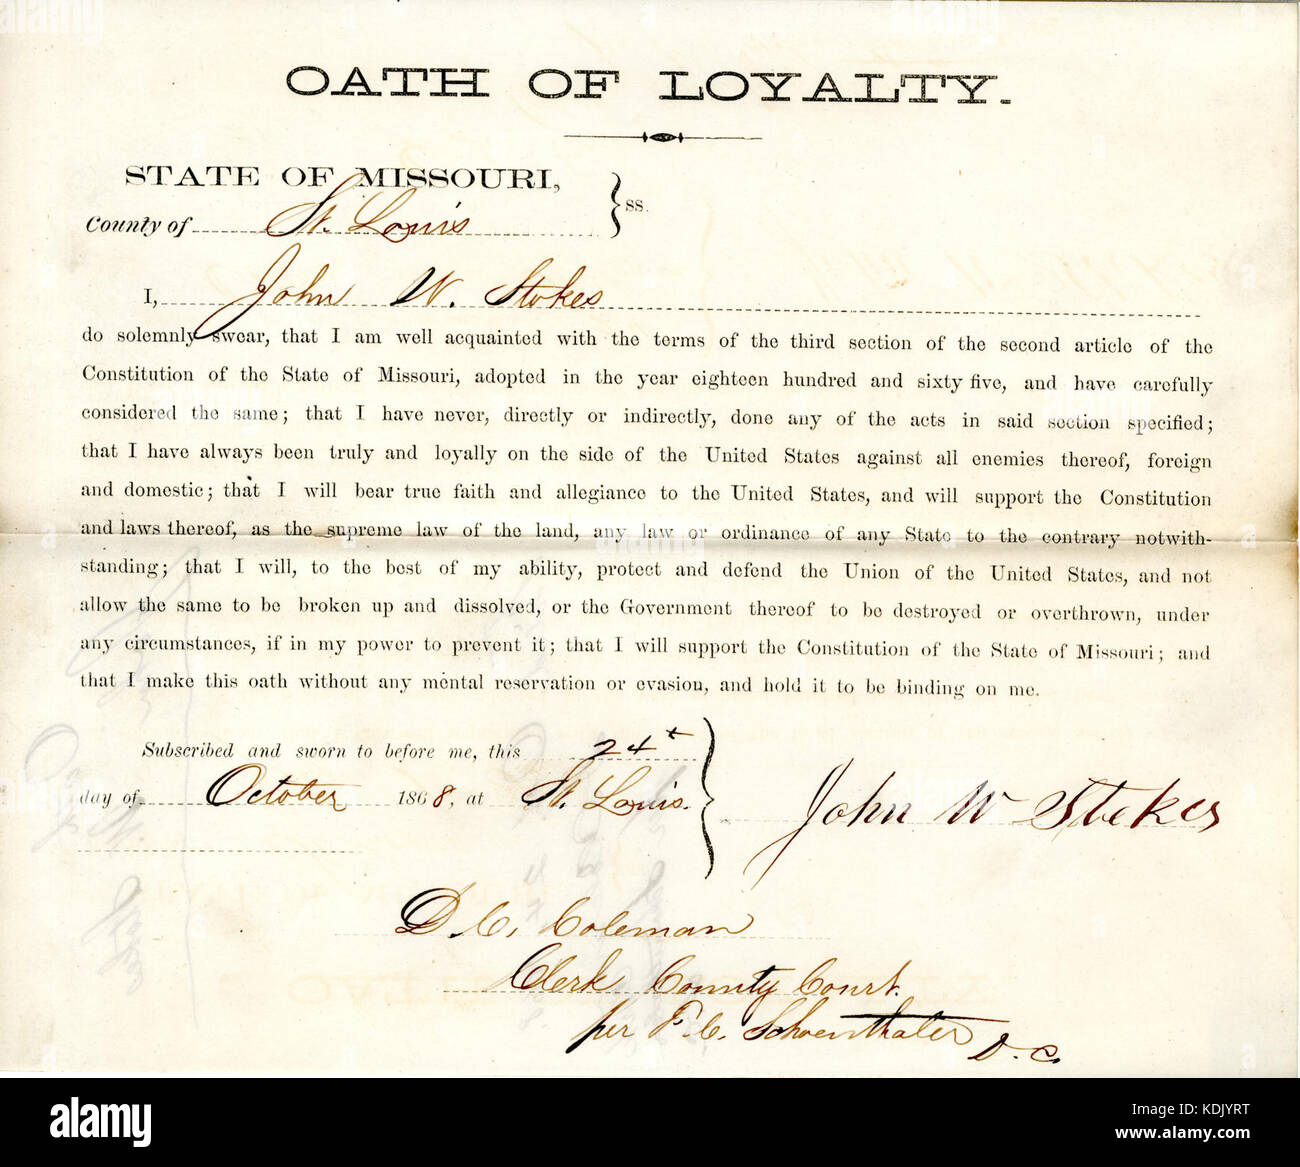 OATH OF LOYALTY.
STATE OF MISSOURI,
County of St. Louis } ss.
I, John W. Stokes
do solemnly swear, that I am well acquainted with the terms of the third section of the second article of the
Constitution of the State of Missouri, adopted in the year eighteen hundred and sixty five, and have carefully
considered the same; that I have never, directly or indirectly, done any of the acts in said section specified;
that I have always been truly and loyally on the side of the United States against all enemies thereof, foreign
and domestic; that I will bear true faith and allegiance to the United States, and will support the Constitution
and laws thereof, as the supreme law of the land, any law or ordinance of any State to the contrary notwith-
standing; that I will, to the best of my ability, protect and defend the Union of the United States, and not
allow the same to be broken up and dissolved, or the Government thereof to be destroyed or overthrown, under
any circumstances, if in my power to prevent it; that I will support the Constitution of the State of Missouri; and
that I make this oath without any mental reservation or evasion, and hold it to be binding on me.
Subscribed and sworn to before me, this 24th
day of October 1868, at St. Louis.
John W Stokes
D. C. Coleman
Clerk County Court.
per F. C. Schoenthaler D. C.
alamy
Image ID: KDJYRT
www.alamy.com